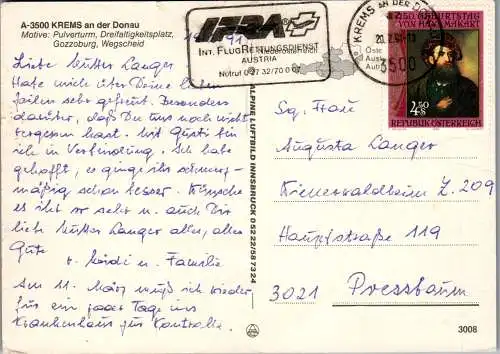 A-3500 KREMS an der Donau
Motive: Pulverturm, Dreifaltigkeitsplatz,
Gozzoburg, Wegscheid
Liebe Mutter Langer
Habe mich über Deine lieben
Zeilen sehr gefreut. Besonders
darüber, daß Du uns noch nicht
vergessen hast. Mit Gusti bin
ich in Verbindung. Ich habe
gehofft, es ginge ihr schmerz-
mäßig schon besser. Wünsche
es ihr so sehr u. auch Dir
liebe Mutter Langer alles, alles
Gute
u. Familie
Am 11. März muß ich wieder
für ein paar Tage ins
Krankenhaus zur Kontrolle.
ALPINE LUFTBILD INNSBRUCK 05222/587324
IFRA
INT. FLUGRETTUNGSDIENST
AUSTRIA
Notruf 0 27 32/70 0 07
KREMS AN DER DONAU
3500
250. GEBURTSTAG
VON HANS MAKART
4.50
S
REPUBLIK ÖSTERREICH
Fam.
Augusta Langer
Wienerwaldheim Z. 209
Hauptstraße 119
3021 Pressbaum
3008